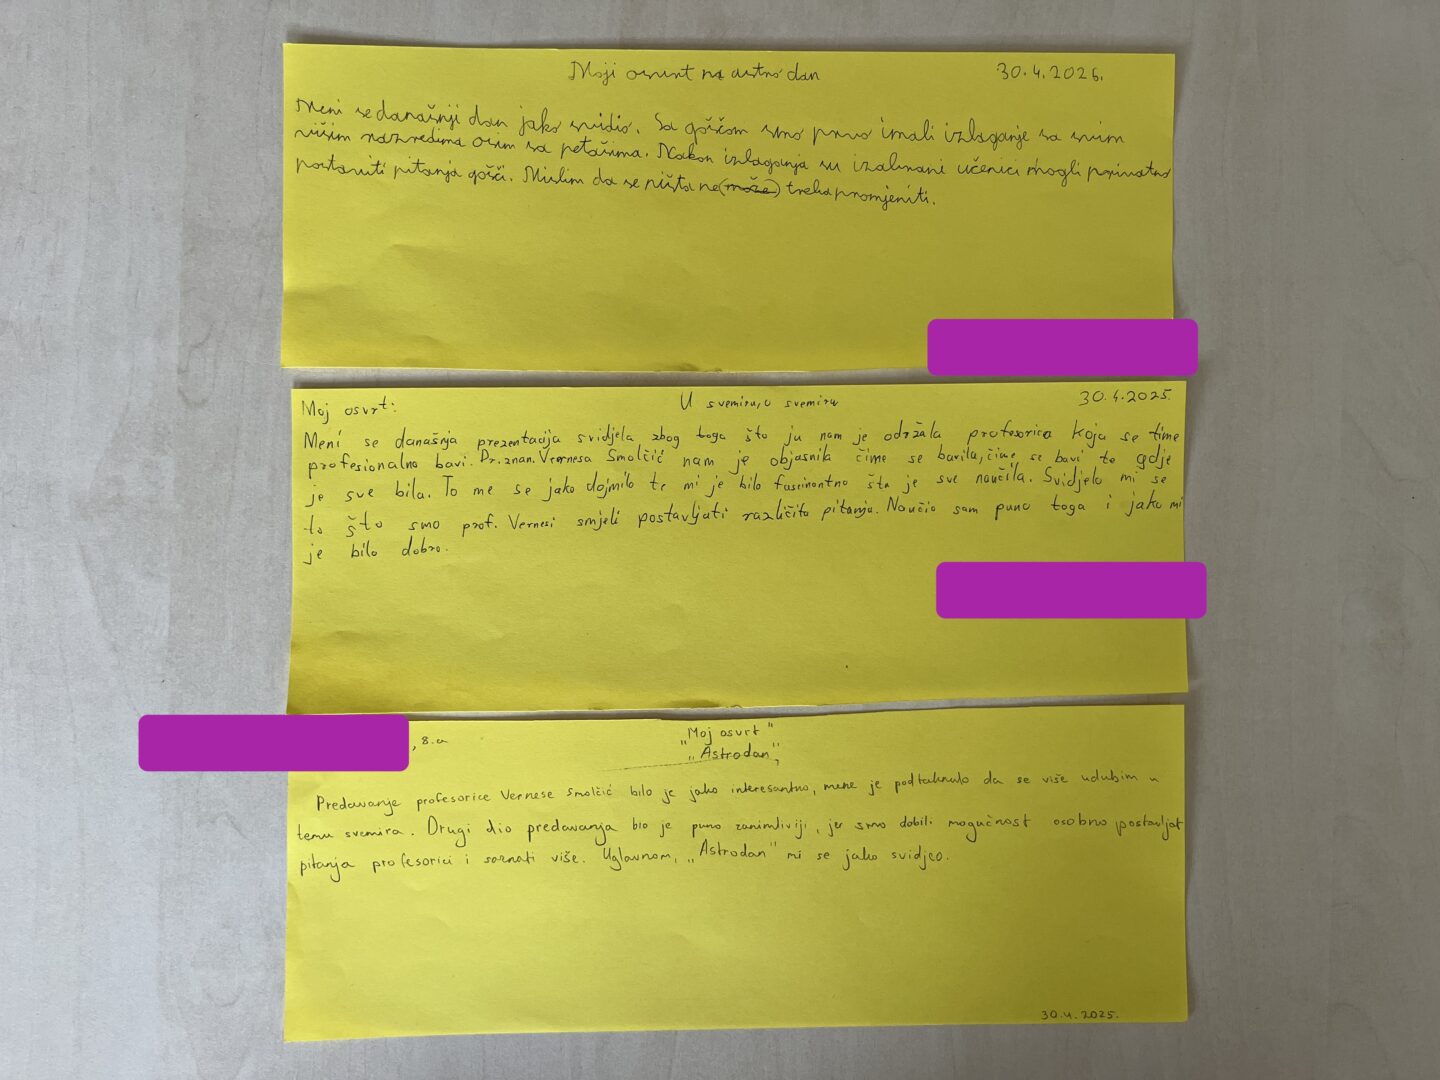 Moji osvrt na astro dan 30.4.2025.
Meni se današnji dan jako svidio. Sa gošćom smo prvo imali izlaganje sa svim
višim razredima osim sa petašima. Nakon izlaganja su izabrani učenici mogli privatno
postaviti pitanja gošći. Mislim da se ništa ne (može) treba promjeniti.
Moj osvrt: U svemiru, o svemiru 30.4.2025.
Meni se današnja prezentacija svidjela zbog toga što ju nam je održala profesorica koja se time
profesionalno bavi. Dr.znan. Vernesa Smolčić nam je objasnila čime se bavila, čime se bavi te gdje
je sve bila. To me se jako dojmilo te mi je bilo fascinantno šta je sve naučila. Svidjelo mi se
to što smo prof. Vernesi smjeli postavljati različita pitanja. Naučio sam puno toga i jako mi
je bilo dobro.
, 8.a „Moj osvrt"
„Astrodan"
Predavanje profesorice Vernese Smolčić bilo je jako interesantno, mene je podtaknulo da se više udubim u
temu svemira. Drugi dio predavanja bio je puno zanimliviji, jer smo dobili mogućnost osobno postavljat
pitanja profesorici i saznati više. Uglavnom, „Astrodan" mi se jako svidjeo.
30.4.2025.